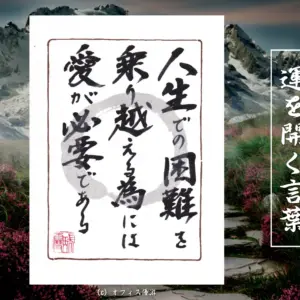 人生での困難を
乗り越える為には
愛が必要である
運を開く言葉
(c) オフィス湧泉